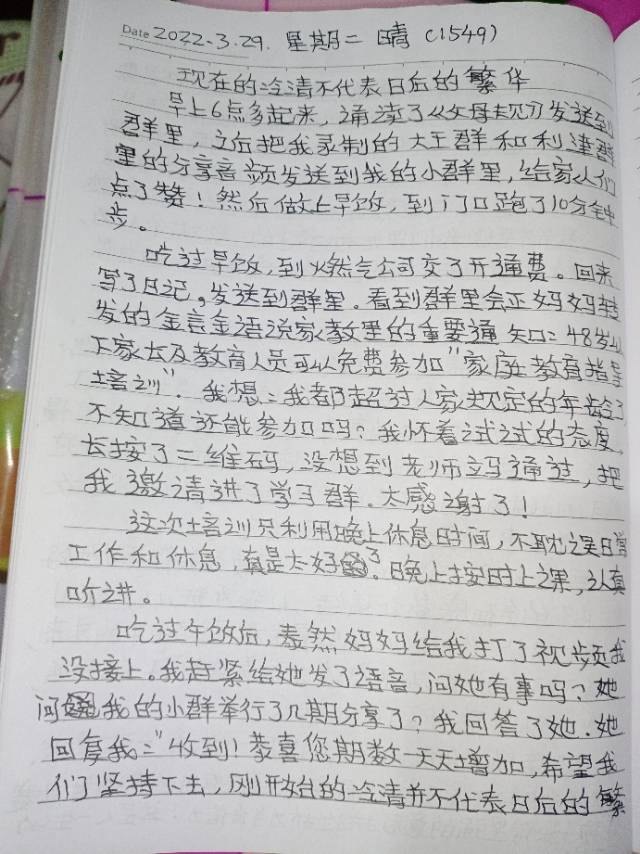 Date 2022.3.29. 星期二 晴 (1549)
现在的冷清不代表日后的繁华
早上6点多起来，诵读了《父母规》发送到
群里，之后把我录制的大王群和利津群
里的分享音频发送到我的小群里，给家人们
点了赞！然后做上早饭，到门口跑了10分钟
步。
吃过早饭，到燃气公司交了开通费。回来
写了日记。发送到群里。看到群里会正妈妈转
发的金言金语说家教里的重要通知：48岁以
下家长及教育人员可以免费参加“家庭教育指导
培训”. 我想：我都超过人家规定的年龄了
不知道还能参加吗？我怀着试试的态度，
长按了二维码，没想到老师立马通过，把
我邀请进了学习群. 太感谢了！
这次培训只利用晚上休息时间，不耽误日常
工作和休息，真是太好了。晚上按时上课，认真
听讲。
吃过午饭后，泰然妈妈给我打了视频我
没接上。我赶紧给她发了语音，问她有事吗？她
问我的小群举行了几期分享了？我回答了她. 她
回复我：“收到！恭喜您期数一天天增加，希望我
们坚持下去，刚开始的冷清并不代表日后的繁